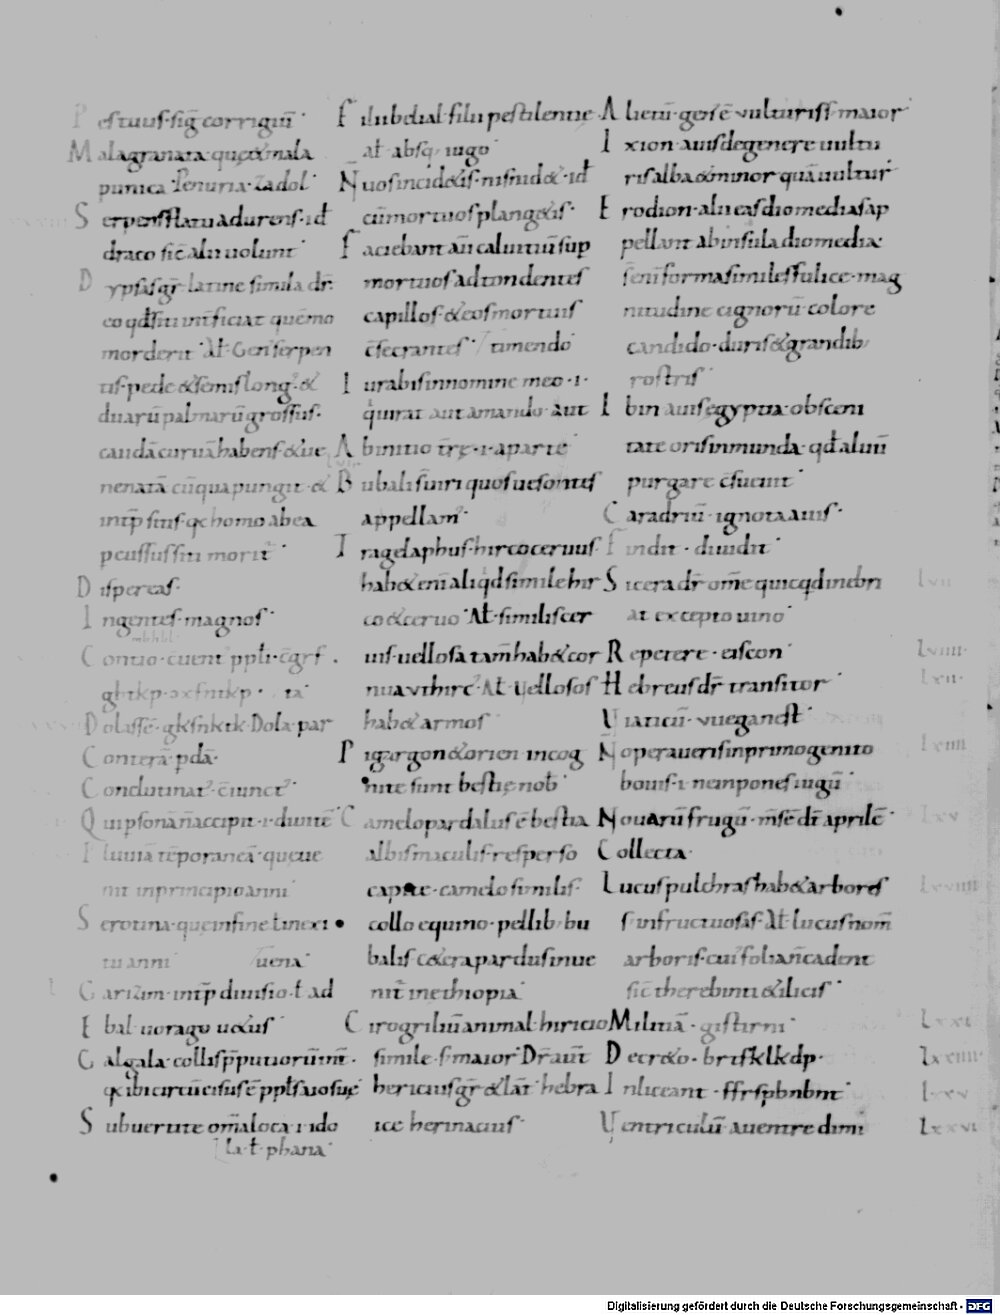 Pestuus· sig̅ corrigiu̅·
Malagranata· que̜ & mala
punica· Penuria· zadol·
Serpens flatu adurens· id̵
draco sic̅ alii uolunt·
Dypsas gr̅· latine simila dr̅·
eo qd̵ siti int̅ficiat que̅ mo
morderit· Al̵ Gen̅ serpen
tis· pede & semis long᾿· &
duaru̅ palmaru̅ grossus·
cauda̅ curua̅ habens· & ue
nenata̅ cu̅ qua pungit· &
int̅p̅ sitis· qc homo ab ea
pcussus siti morit̅·
Dispereas·
Ingentes· magnos·
Contio· c̅uent᾿ ppl̵i· c̅gr̅·
Dolasse̅· gksnktk· Dola· par
Contera̅· pda̅·
Conclutinat᾿· c̅iunct᾿·
Quipsona̅ n̅ accipit· i· diuite̅·
Pluuia̅ te̅poranea̅· que ue
nit in principio anni·
Serotina· que̜ in fine l̵ in exi
tu anni· uena·
Garizim· int̅p̅ diuisio· l̵ ad
Ebal· uorago uetus·
Galgala· collis p̅putioru̅ in̅t̅·
qc ibi circu̅cisus e̅ ppl̵s a iosue̜
Subuertite om̅a loca· i· ido
la· l̵· phana·
Filii belial· filii pestilentie·
al̵· absq· iugo·
N̅ uos incid&is· nisi uid&· id̵
cu̅ mortuos plang&is·
Faciebant au̅ caluitiu̅ sup
mortuos adtondentes
capillos· & eos mortuis
c̅secrantes· timendo·
Iurabis in nomine meo· i·
quirat aut amando· aut
Ab initio t̅re̜· i· a parte·
Bubali s̅ uiri quos uesontes
appellam᾿·
Tragelaphus· hircoceruus·
hab& eni̅ aliqd simile hir
co & ceruo· Al̵· similis cer
uis· uellosa tam̅ hab& cor
nua ut hirc᾿· Al̵· Vellosos
hab& armos·
Pigargon & orien· incog
nite sunt bestie̜ nob̵·
Camelopardalus e̅ bestia
albis maculis· resperso
capite· camelo similis·
collo equino· pellib; bu
balis· c&era pardus inue
nit̅ in ethiopia·
Cirogriliu̅ animal· hiricio
simile· s· maior· Dr̅ aut̅
hericius gr̅· & lat̅· hebra
ice herinacius·
Alietu̅· ge͂s e̅ vulturis s· maior·
Ixion· auis de genere uultu
ris alba & minor qua̅ uultur·
Erodion· alii eas diomedias ap
pellant ab insula diomedia·
sen̅i forma similes fulice· mag
nitudine cignoru̅ colore
candido· duris & grandib;
rostris·
Ibin auis e̜gyptia· obsceni
tate oris inmunda· qd̵ aluu̅
purgare c̅sueuit·
Caradriu̅· ignota auis·
Findit· diuidit·
Sicera dr̅· om̅e quicqd inebri lvii
at excepto uino·
Repetere· eiscon· lviiii·
Hebreus dr̅ transitor· lxii·
Viaticu̅· vueganest·
N̅ operaueris in primogenito lxiiii
bouis· i· ne inpones iugu̅·
Nouaru̅ frugu̅· m̅se dr̅ aprile̅· lxv
Collecta·
Lucus pulchras hab& arbores lxviiii
s· infructuosas· Al̵· lucus nom̅
arboris· cui᾿ folia n̅ cadent
sic̅ therebinti & ilicis·
Militia̅· gistirni· lxxi
Decr&o· brksklkdp· lxxiiii
Inliceant· ffrspbnbnt· lxxv
Ventriculu̅· a uentre dimi lxxvi
Digitalisierung gefördert durch die Deutsche Forschungsgemeinschaft - DFG